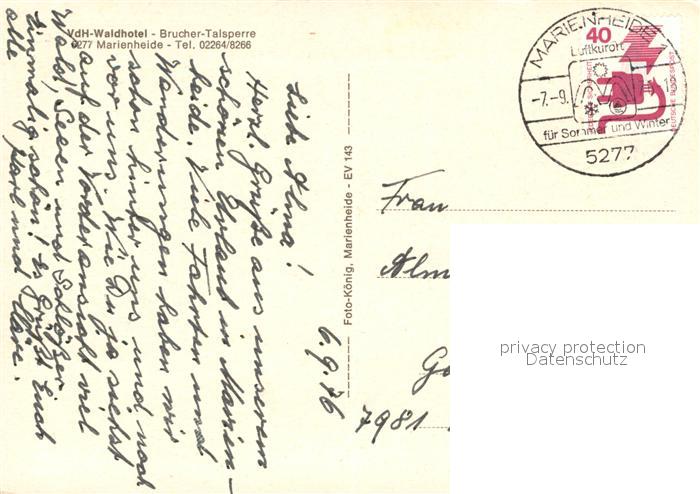 VdH-Waldhotel - Brucher-Talsperre
5277 Marienheide - Tel. 02264/8266
6.9.76
Liebe Alma!
Herzl. Grüße aus unserem
schönen Urlaub in Marien-
heide. Viele Fahrten und
Wanderungen haben wir
schon hinter uns und noch
vor uns. Wie Du ja siehst
auf der Vorderansicht viel
Wald, Seeen und Schlößer.
Einmalig schön! Es grüßt Euch
alle Karl und Kläre.
Foto-König, Marienheide - EV 143
MARIENHEIDE 1
Luftkurort
-7.-9.
für Sommer und Winter
5277
40
DEUTSCHE BUNDESPOST
Frau
Alm
Ga
7981
privacy protection
Datenschutz